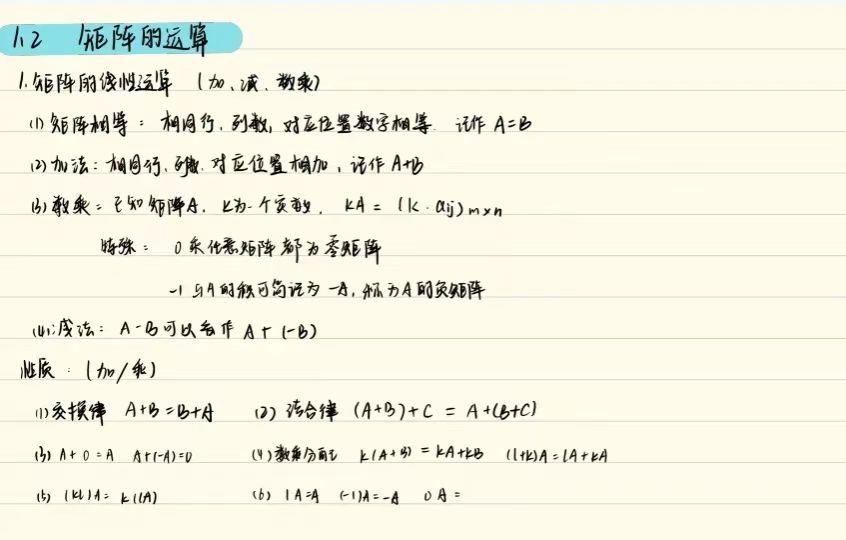 1.2 矩阵的运算
1.矩阵的线性运算 (加、减、数乘)
(1) 矩阵相等: 相同行、列数, 对应位置数字相等. 记作 A=B
(2) 加法: 相同行、列数. 对应位置相加, 记作 A+B
(3) 数乘: 已知矩阵A, k为一个实数, kA = (k·aij)m×n
特殊: 0乘任意矩阵都为零矩阵
-1与A的积可简记为 -A, 称为A的负矩阵
(4) 减法: A-B可以看作 A+(-B)
性质: (加/乘)
(1)交换律 A+B=B+A (2) 结合律 (A+B)+C = A+(B+C)
(3) A+0=A A+(-A)=0 (4)数乘分配 k(A+B)=kA+kB (l+k)A=lA+kA
(5) (kl)A= k(lA) (6) 1A=A (-1)A=-A 0A=